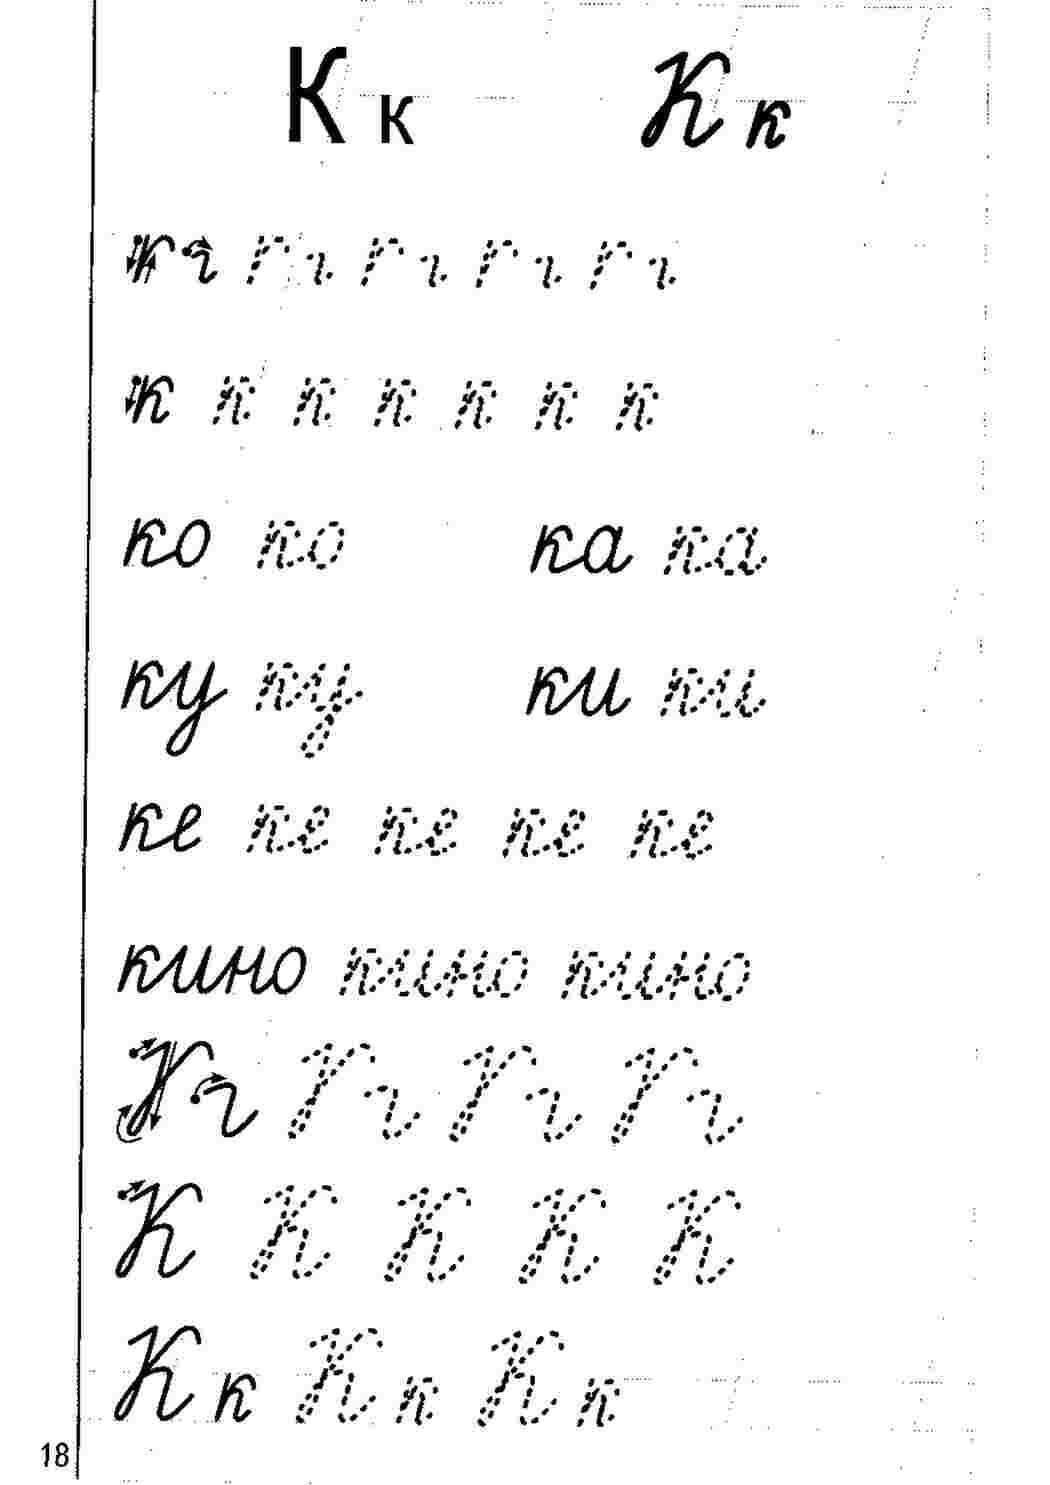 К к К к
к к к к к к к
ко ко ка ка
ку ку ки ки
ке ке ке ке ке
кино кино кино
К К К К К
К к К к К к
18